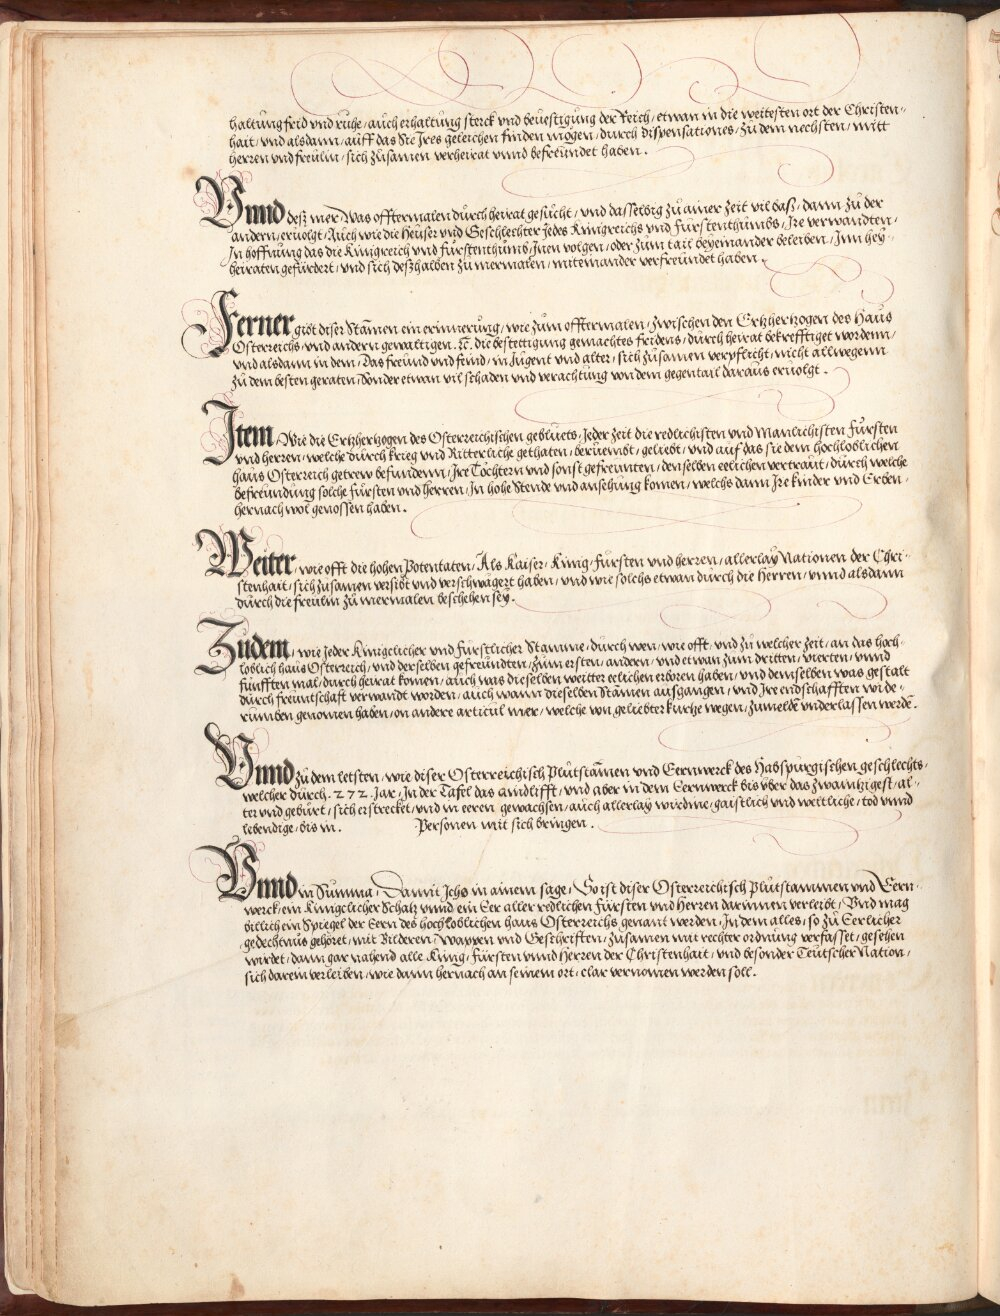 haltung frid vnd ruhe / auch erhaltung sterck vnd beuestigung der Reich / etwan in die weitesten ort der Christen-
hait / vnd alsdann / auff das Sie Ires geleichen finden mögen / durch dispensationes / zu dem nechsten / mitt
herren vnd freulin / sich zusamen verheirat vnnd befreundet haben.
Vnnd desz mer / Was offtermalen durch heirat gesucht / vnd dasselbig zu ainer zeit vil basz / dann zu der
andern / eruolgt / Auch wie die Heuser vnd Geschlechter jedes Kunigreichs vnd Furstenthumbs / Ire verwandten /
In hoffnung das die Kunigreich vnd furstenthumb / Inen volgen / oder zum tail beyeinander beleiben / Inn hey-
heiraten gefurdert / vnd sich deszhalben zu mermalen / miteinander verfreundet haben.
Ferner gibt diser Stamen ein erinnerung / wie zum offtermalen / zwischen den Ertzhertzogen des Haus
Osterreichs / vnd andern gewaltigen. ꝛc. die bestettigung gemachtes fridens / durch heirat bekrefftiget wordenn /
vnd alsdann in dem / Das freund vnd feind / in Jugent vnd alter / sich zusamen verpflicht / nicht allwegenn
zu dem besten geraten / Sonder etwan vil schaden vnd verachtung von dem gegentail daraus eruolgt.
Item / Wie die Ertzhertzogen des Osterreichischen gebluets / Jeder zeit die redlichisten vnd Manlichisten Fursten
vnd herren / welche durch krieg vnd Ritterliche gethaten / beruembt / geliebt / vnd auf das sie dem hochloblichen
haus Osterreich getrew befundenn / Ire Töchtern vnd sonst gefreunten / denselben eelichen vertraut / durch welche
befreundung solche fursten vnd herren / In hohe Stende vnd ansehung komen / welchs dann Ire kinder vnd Erben /
hernach wol genossen haben.
Weiter / wie offt die hohen Potentaten / Als Kaiser / Kunig / Fursten vnd herren / allerlay Nationen der Chri-
stenhait / sich zusamen versibt vnd verschwägert haben / vnd wie solchs etwan durch die Herren / vnnd alsdann
durch die freulin zu mermalen beschehen sey.
Zudem / wie jeder Kunigclicher vnd furstlicher Stamme / durch wen / wie offt / vnd zu welcher zeit / an das hoch-
loblich haus Osterreich / vnd derselben gefreundten / zum ersten / andern / vnd etwan zum dritten / vierten / vnnd
funfften mal / durch heirat komen / auch was dieselben weitter eelichen erboren haben / vnd demselben was gestalt
durch freuntschaft verwandt worden / auch wann dieselben Stämen ausgangen / vnd Ire endschafften wide-
rumben genomen haben / on andere articul mer / welche von geliebter kurtze wegen / zumelde vnderlassen werdē.
Vnnd zu dem letsten / wie diser Osterreichisch Plutstāmen vnd Eernwerck des Habspurgischen geschlechts /
welcher durch. 272. Jar / In der Tafel das aindlifft / vnd aber in dem Eernwerck bis vber das zwaintzigest / al-
ter vnd geburt / sich erstrecket / vnd in eeren gewachsen / auch allerlay wirdine / gaistlich vnd weltliche / tod vnnd
lebendige / bis in. Personen mit sich bringen.
Vnnd in Summa / Damit Ichs in ainem sage / So ist diser Osterreichisch Plutstammen vnd Eern-
werck / ein Kunigclicher Schatz vnnd ein Eer aller redlichen Fursten vnd Herren darinnen verleibt / Vnd mag
billich ein Spiegel der Eern des hochloblichen haus Osterreichs genant werden / In dem alles / so zu Eerlicher
gedechtnus gehöret / mit Bilderen / wappen vnd Geschrifften / zusamen mit rechter ordnung verfasset / gesehen
wirdet / dann gar nahend alle Kunig / Fursten vnnd Herren der Christenhait / vnd besonder Teutscher Nation /
sich darein verleiben / wie dann hernach an seinem ort / clar vernomen werden soll.